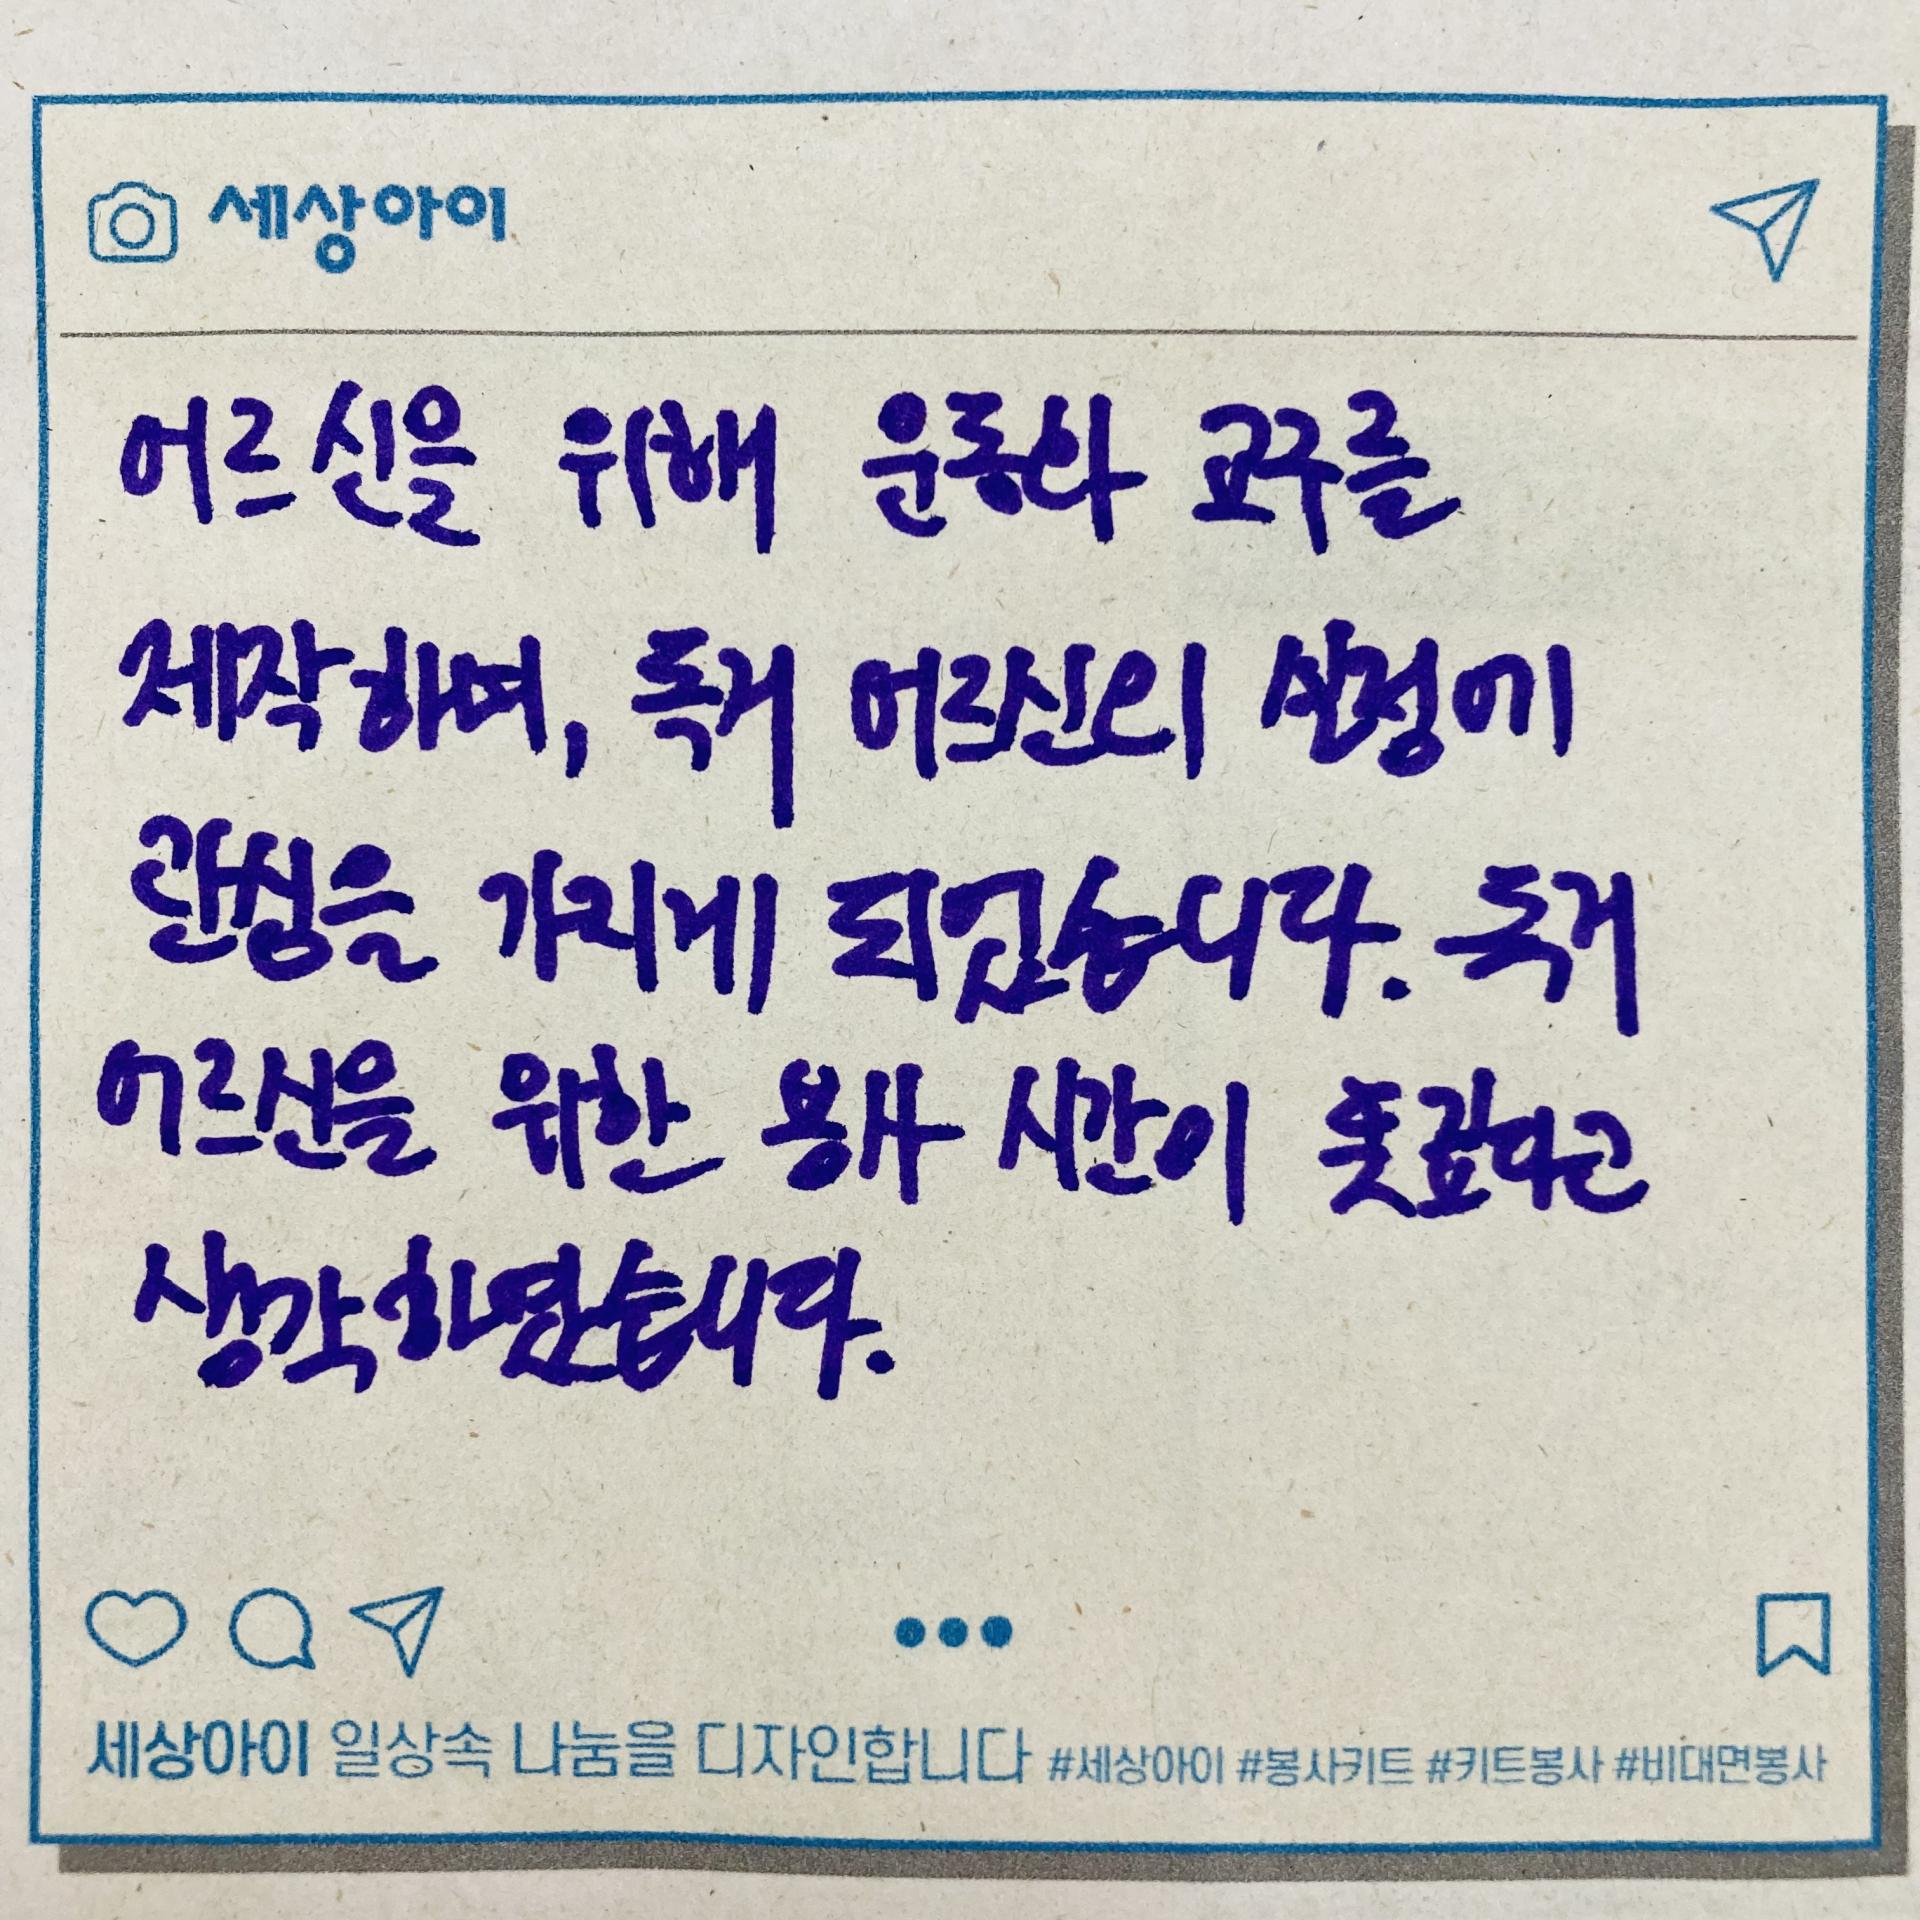 세상아이
어르신을 위해 운동화 교구를
제작하며, 독거 어르신의 실정에
관심을 가지게 되었습니다. 독거
어르신을 위한 봉사 시간이 뜻깊다고
생각하였습니다.
세상아이 일상속 나눔을 디자인합니다 #세상아이 #봉사키트 #키트봉사 #비대면봉사